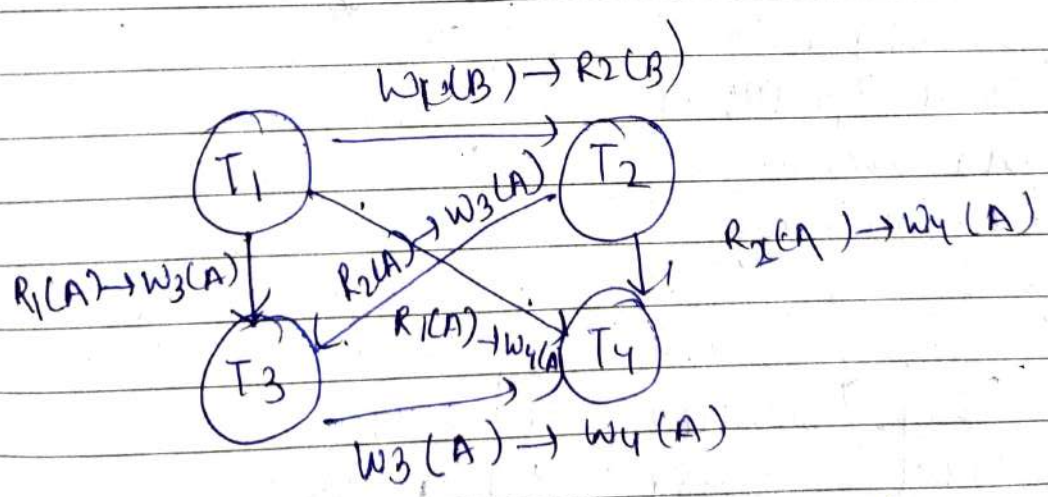 W1(B) → R2(B)
T1
T2
R2(A) → W3(A)
R1(A) → W3(A)
R2(A) → W4(A)
R1(A) → W4(A)
T3
T4
W3(A) → W4(A)